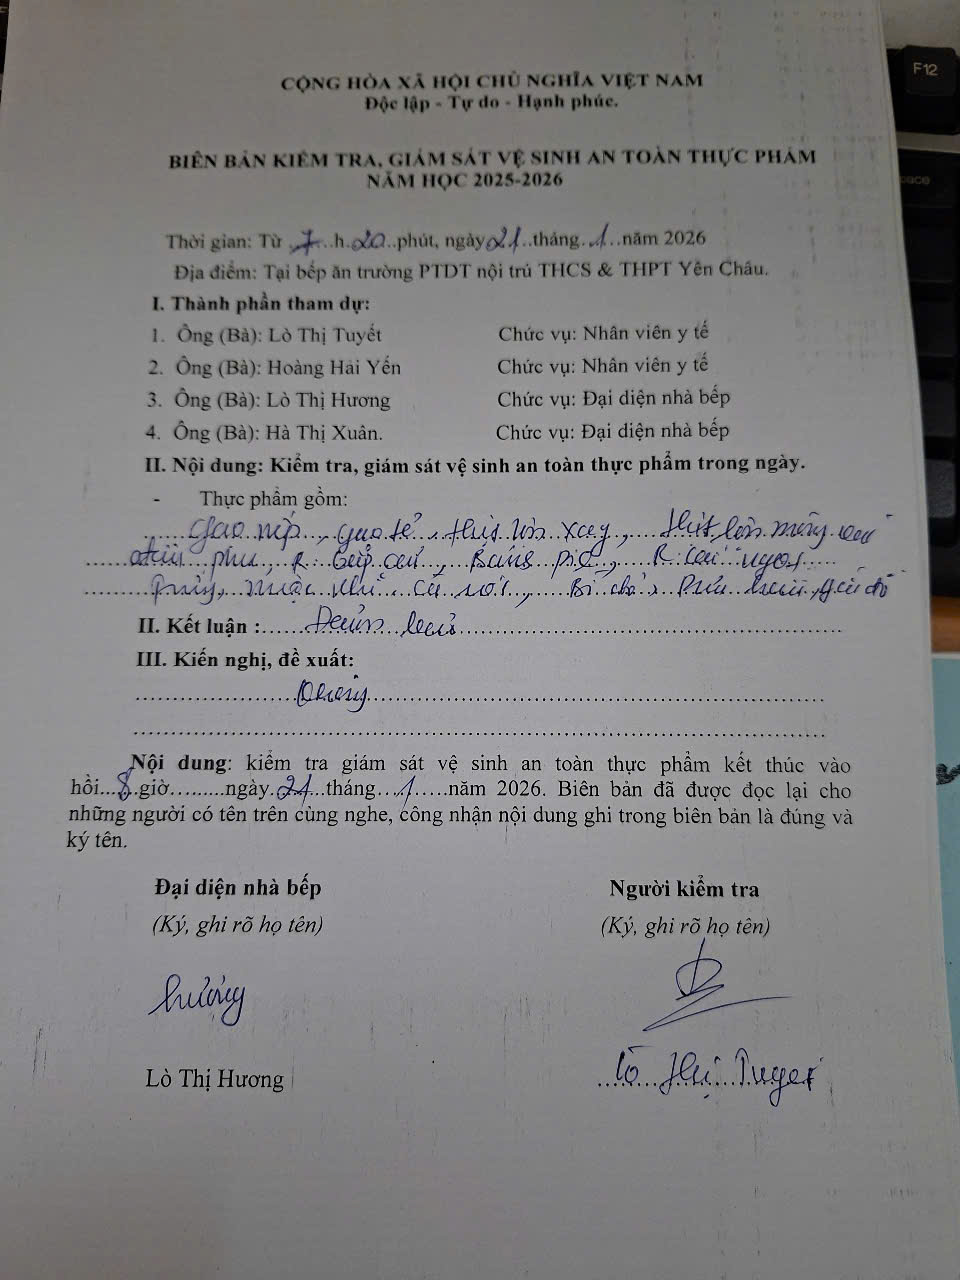 F12
CỘNG HÒA XÃ HỘI CHỦ NGHĨA VIỆT NAM
Độc lập - Tự do - Hạnh phúc.
BIÊN BẢN KIỂM TRA, GIÁM SÁT VỆ SINH AN TOÀN THỰC PHẨM
NĂM HỌC 2025-2026
Thời gian: Từ 7 h 20 phút, ngày 21 tháng 1 năm 2026
Địa điểm: Tại bếp ăn trường PTDT nội trú THCS & THPT Yên Châu.
I. Thành phần tham dự:
1. Ông (Bà): Lò Thị Tuyết Chức vụ: Nhân viên y tế
2. Ông (Bà): Hoàng Hải Yến Chức vụ: Nhân viên y tế
3. Ông (Bà): Lò Thị Hương Chức vụ: Đại diện nhà bếp
4. Ông (Bà): Hà Thị Xuân. Chức vụ: Đại diện nhà bếp
II. Nội dung: Kiểm tra, giám sát vệ sinh an toàn thực phẩm trong ngày.
- Thực phẩm gồm:
Gạo nếp, gạo tẻ, thịt lợn xay, thịt lợn mông
đậu phụ, R. bắp cải, R. cải ngọt
II. Kết luận : Đảm bảo
III. Kiến nghị, đề xuất:
Không
Nội dung: kiểm tra giám sát vệ sinh an toàn thực phẩm kết thúc vào
hồi 8 giờ.........ngày 21 tháng 1 năm 2026. Biên bản đã được đọc lại cho
những người có tên trên cùng nghe, công nhận nội dung ghi trong biên bản là đúng và
ký tên.
Đại diện nhà bếp Người kiểm tra
(Ký, ghi rõ họ tên) (Ký, ghi rõ họ tên)
Hương
Lò Thị Hương Lò Thị Tuyết